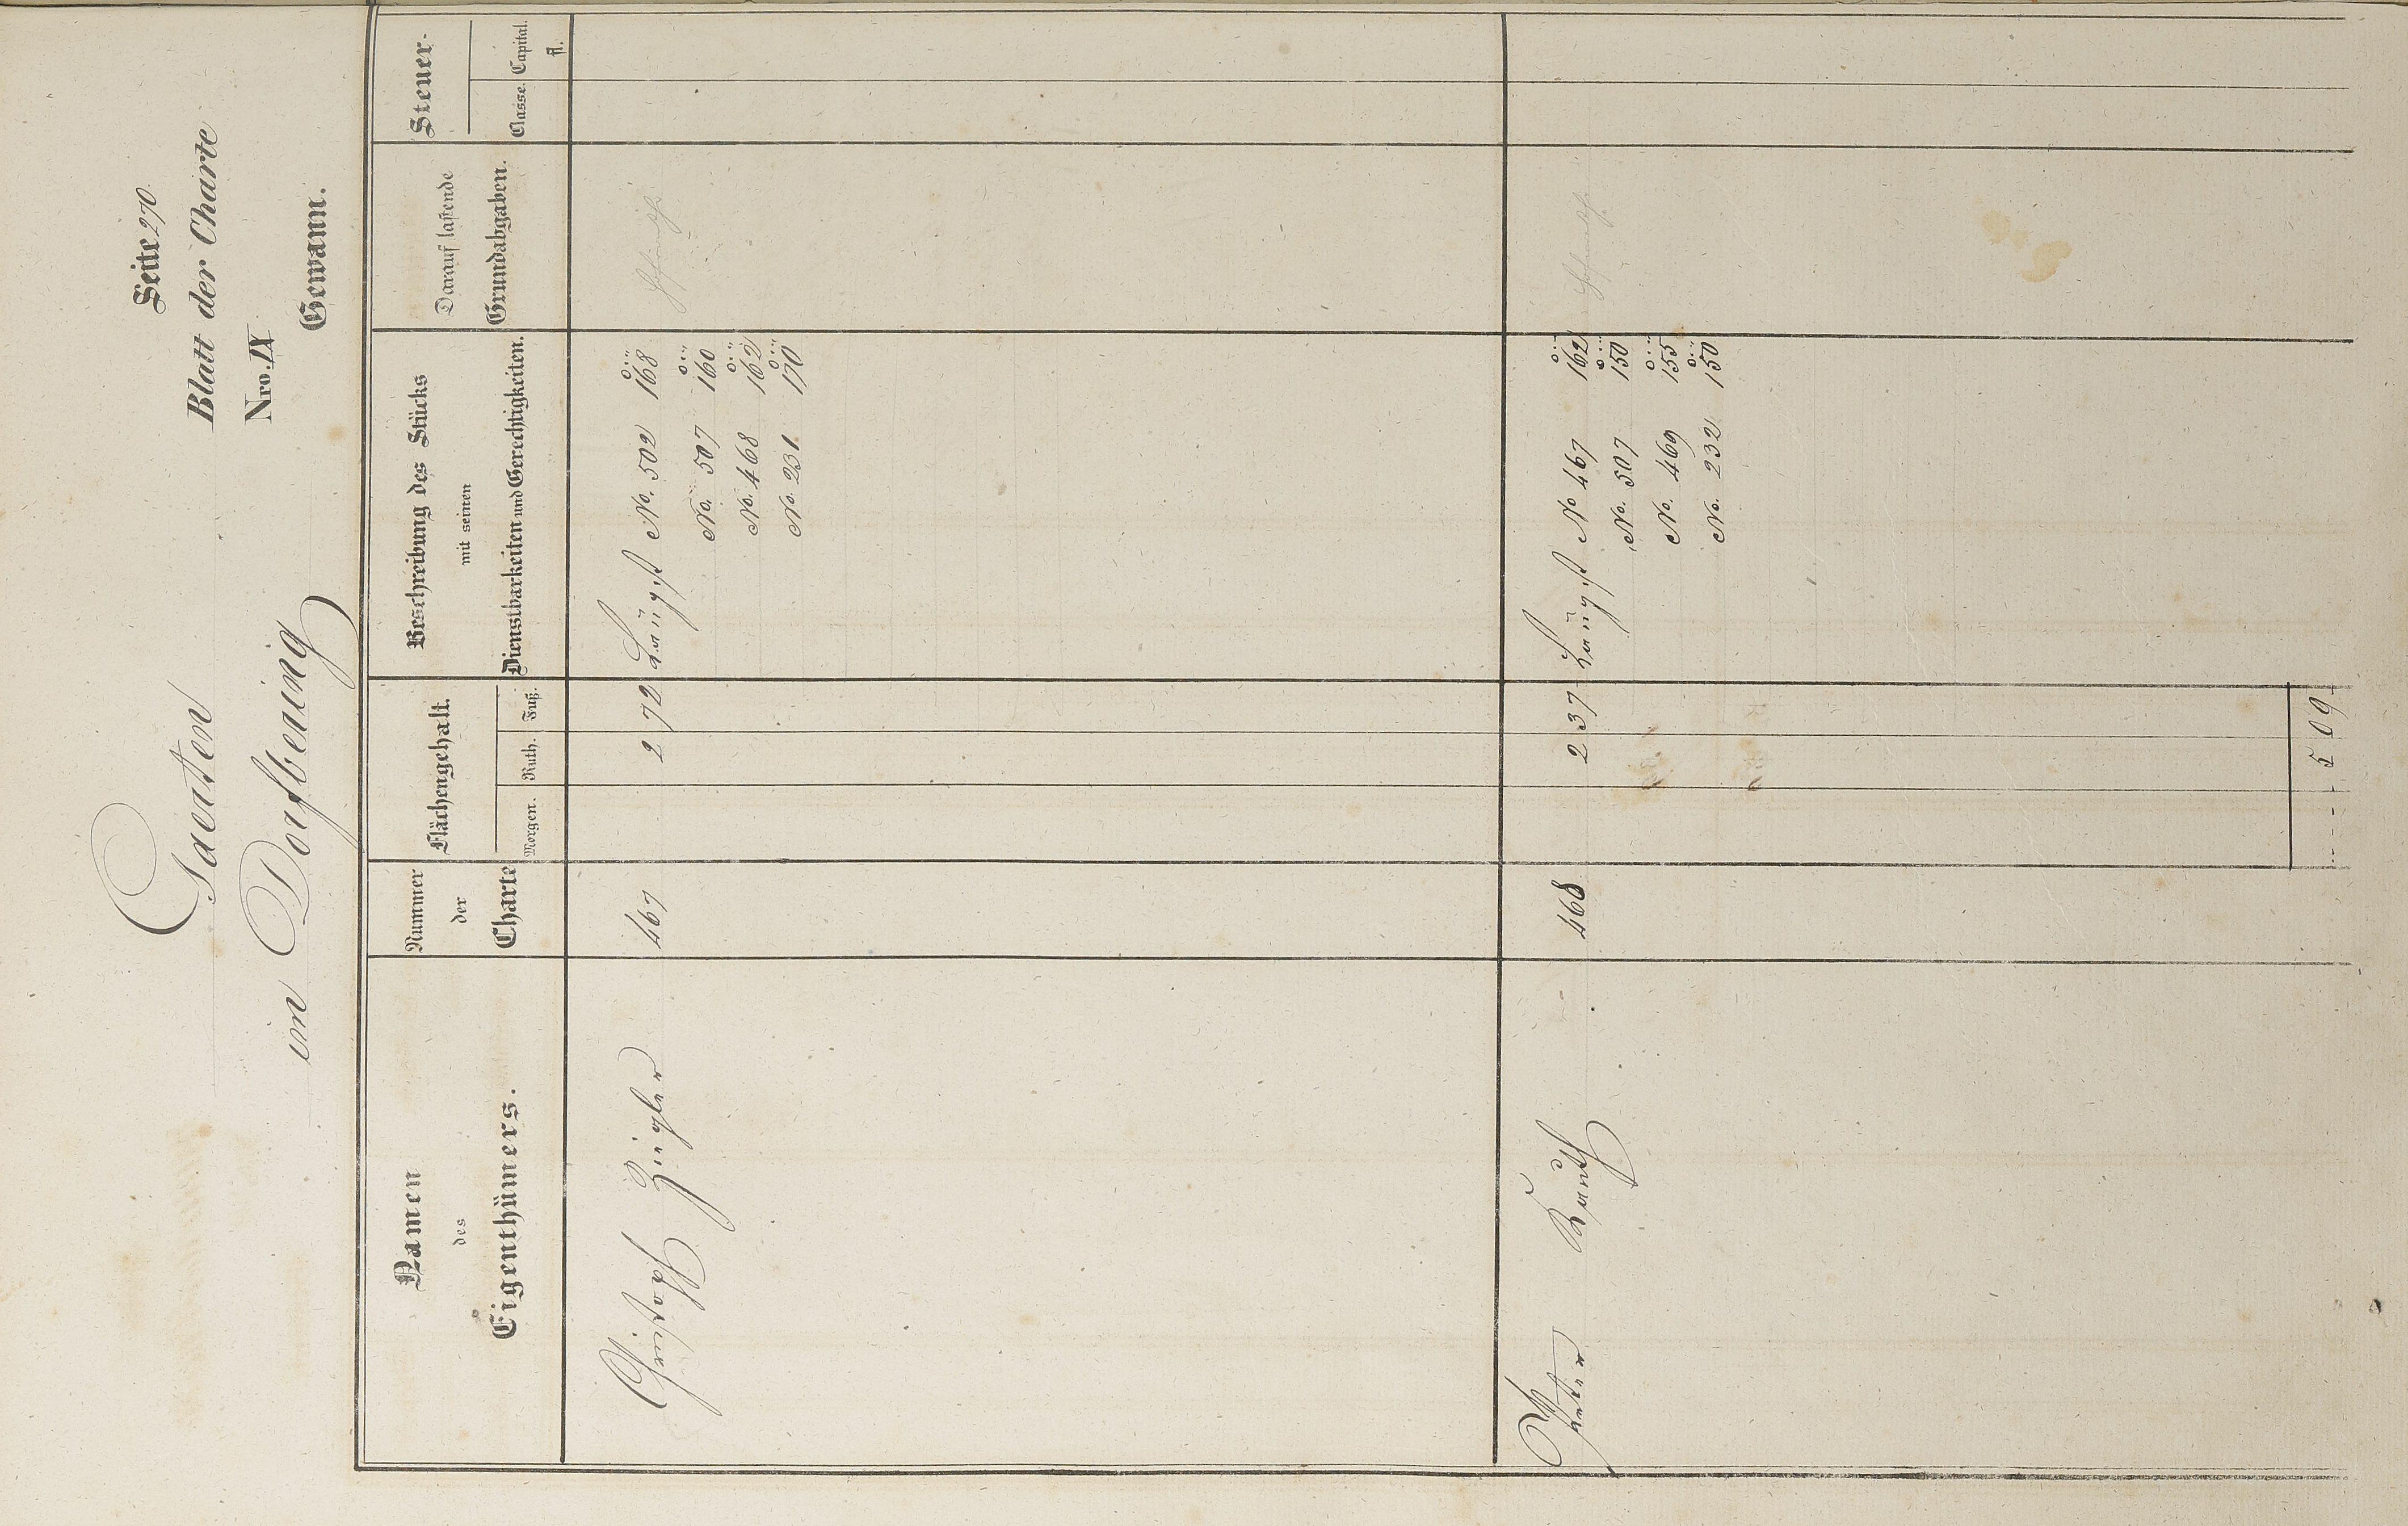 Seite 270.
Blatt der Charte
Nro. IX
Gewann.
Gaerten
im Dorfbering
Namen
des
Eigenthümers.
Nummer
der
Charte
Flächengehalt.
Morgen. Ruth. Fuß.
Beschreibung des Stücks
mit seinen
Dienstbarkeiten und Gerechtigkeiten.
Darauf lastende
Grundabgaben.
Steuer-
Classe. Capital.
fl.
Christoph Ziegler 467 2 72 Laengst No. 502 168
No. 507 160
No. 468 162
No. 231 170
Peter Knauth 468 2 37 Laengst No 467 162
No. 507 150
No. 469 155
No. 232 150
5 09